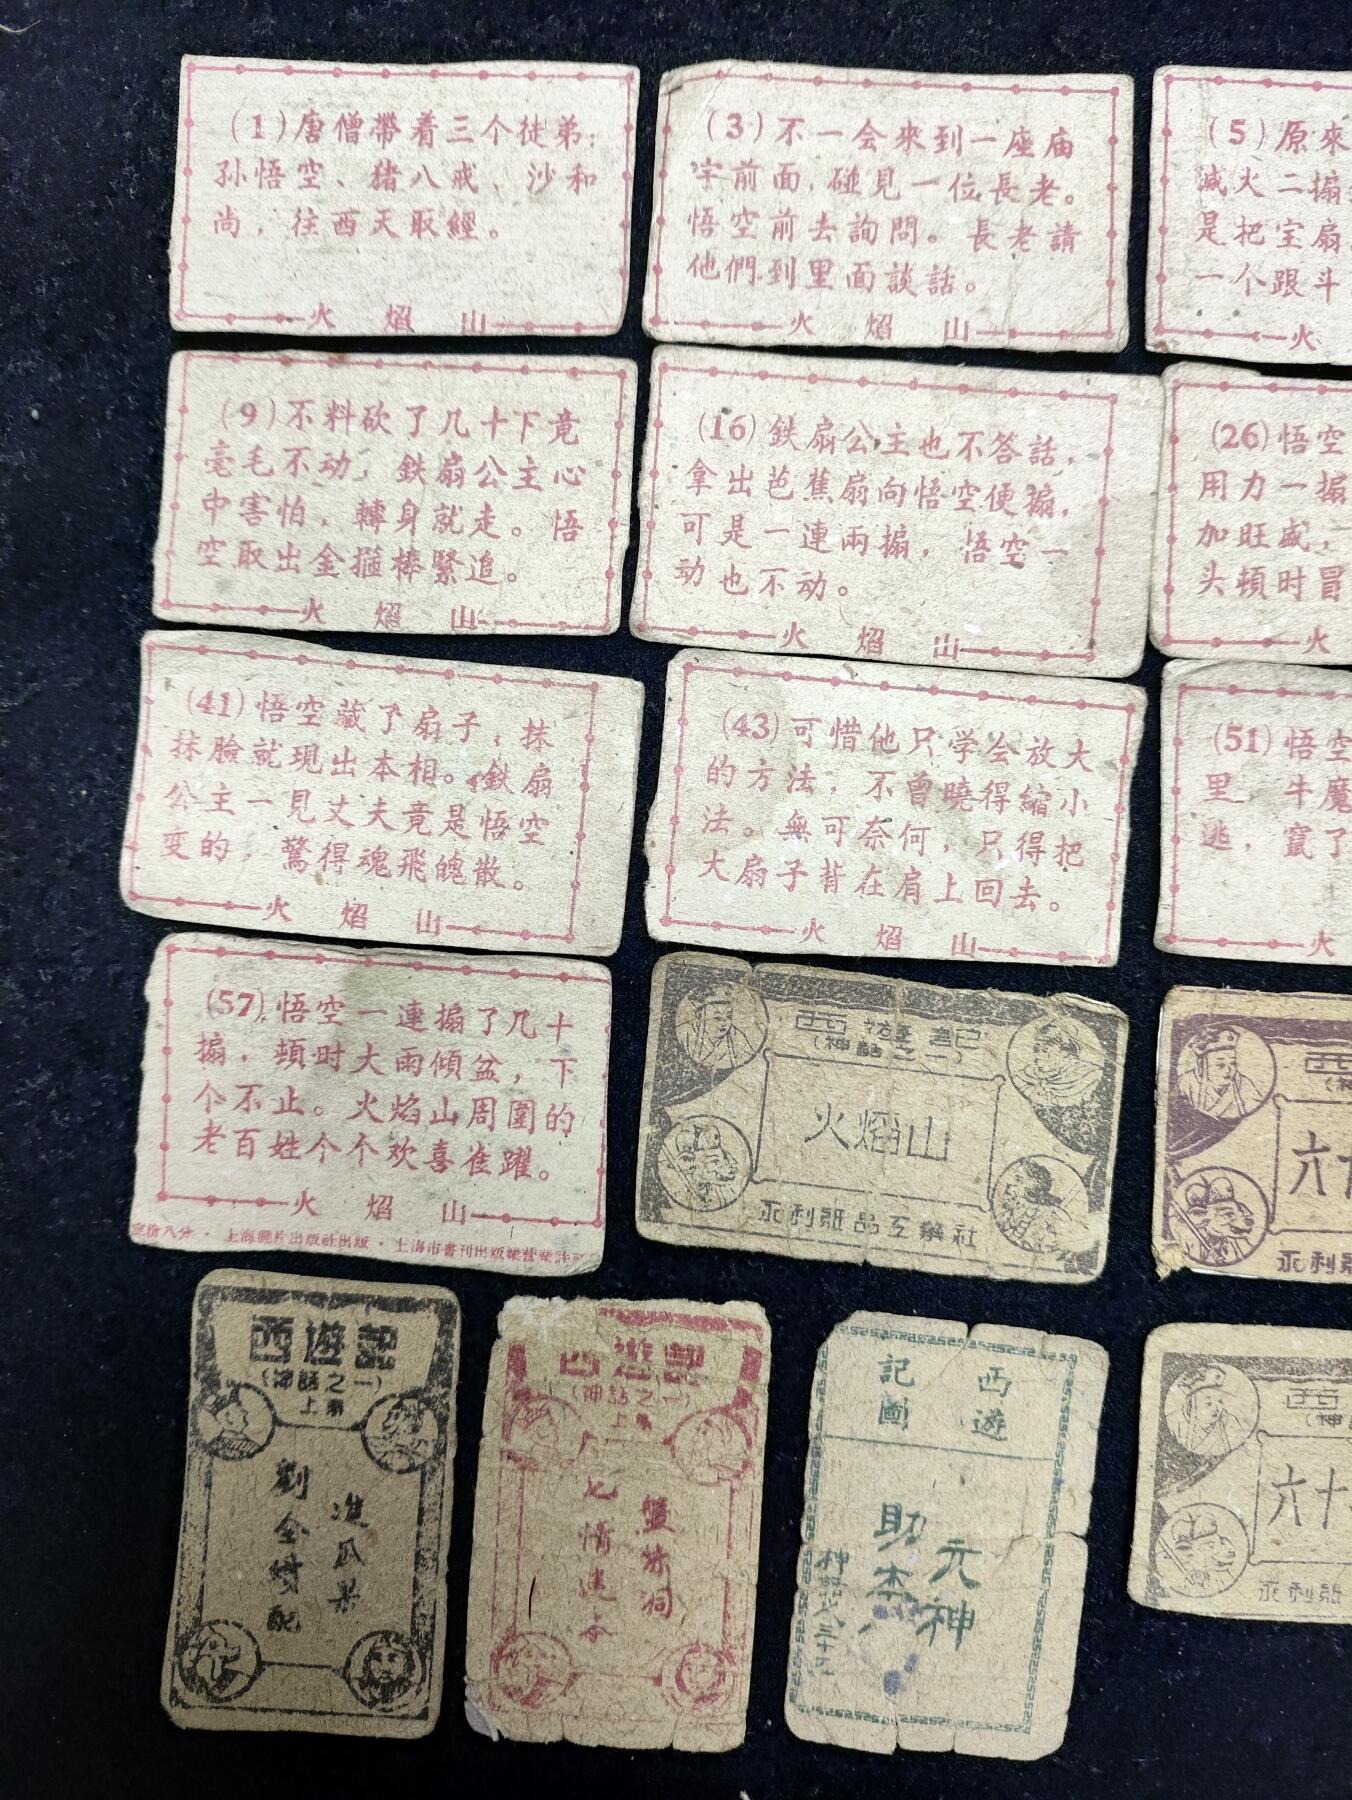 (1)唐僧帶着三个徒弟:
孙悟空、豬八戒、沙和
尚，往西天取經。
火焰山
(3)不一会來到一座庙
宇前面,碰見一位長老。
悟空前去詢問。長老請
他們到里面談話。
火焰山
(5)原來
滅火二搧
是把宝扇
一个跟斗
火
(9)不料砍了几十下竟
毫毛不动，鉄扇公主心
中害怕，轉身就走。悟
空取出金箍棒緊追。
火焰山
(16)鉄扇公主也不答話，
拿出芭蕉扇向悟空便搧，
可是一連兩搧，悟空一
动也不动。
火焰山
(26)悟空
用力一搧
加旺盛，
头頓时冒
火
(41)悟空藏了扇子，抹
抹臉就現出本相。鉄扇
公主一見丈夫竟是悟空
变的，驚得魂飛魄散。
火焰山
(43)可惜他只学会放大
的方法，不曾曉得縮小
法。無可奈何，只得把
大扇子背在肩上回去。
火焰山
(51)悟空
里，牛魔
逃，竄了
火
(57)悟空一連搧了几十
搧，頓时大雨傾盆，下
个不止。火焰山周圍的
老百姓个个欢喜雀躍。
火焰山
定价八分·上海圖片出版社出版·上海市書刊出版業営業許可
西遊記
(神話之一)
火焰山
永利紙品工藥社
西
(神
六十
永利紙
西遊記
(神話之一)
上集
進瓜果
劉全續配
西遊記
(神話之一)
上集
盤絲洞
七情迷本
西遊
記圖
元神
助本
神話之三十
西
(神
六十
永利紙